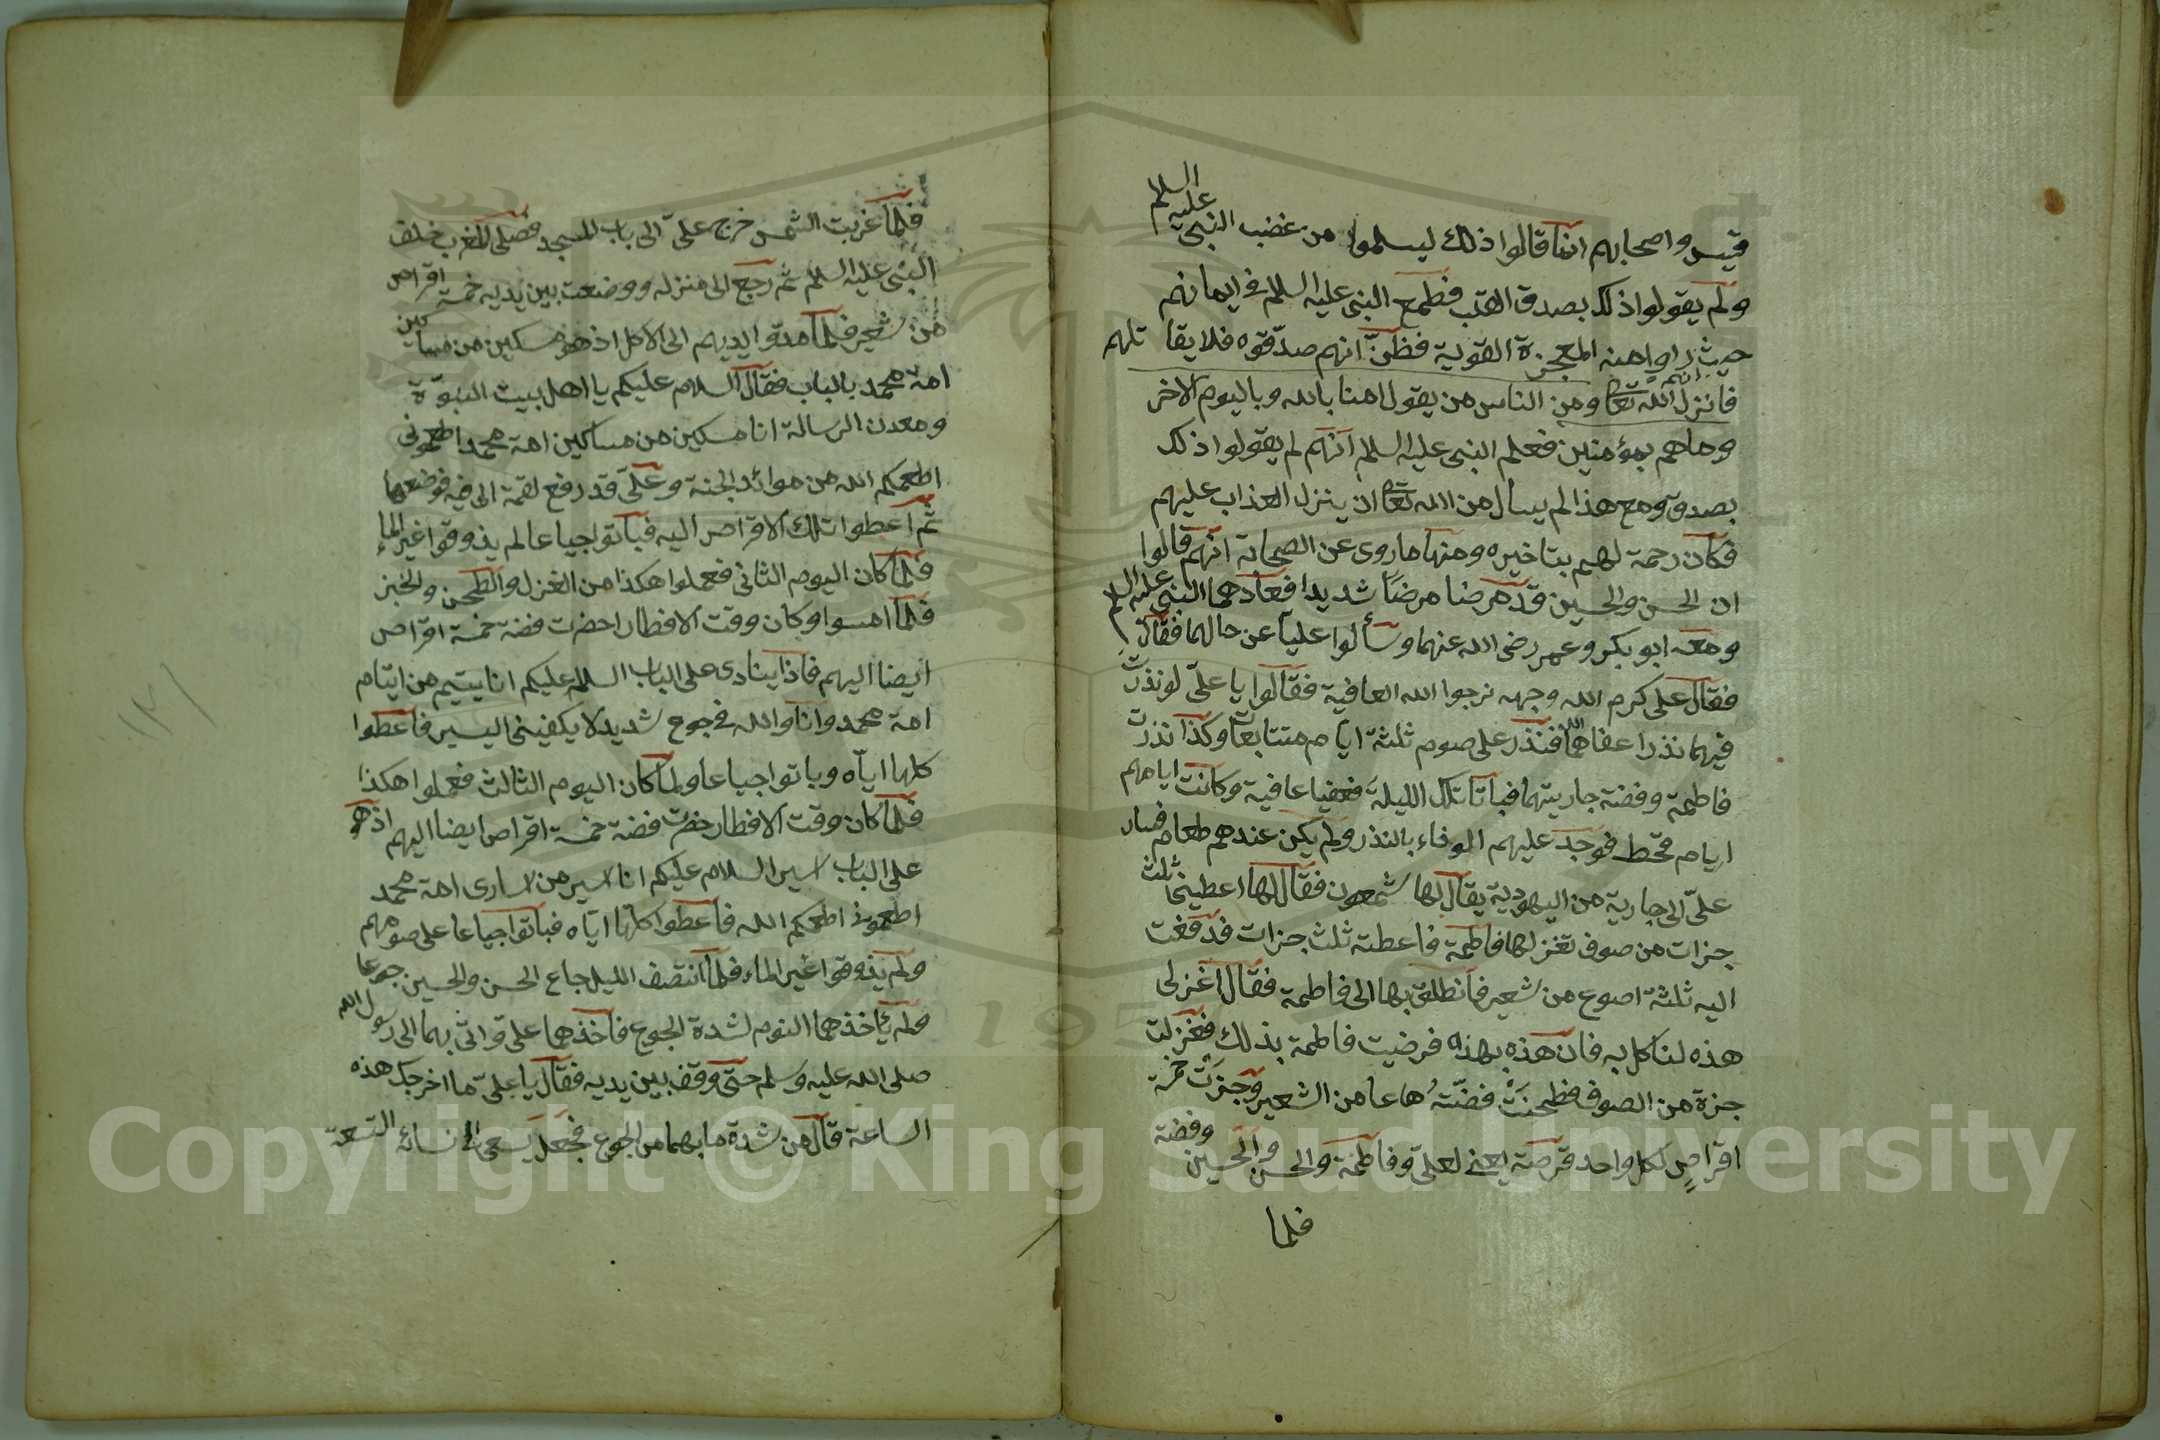 قيس واصحابهم انما قالوا ذلك ليسلموا من غضب النبي عليه السلام
ولم يقولوا ذلك بصدق القلب فطمع النبي عليه السلام في ايمانهم
حيث راوا هذه المعجزة القوية فظن انهم صدقوه فلا يقا تلهم
فانزل الله تعا ومن الناس من يقول امنا بالله وباليوم الاخر
وما هم بمؤمنين فعلم النبي عليه السلام انهم لم يقولوا ذلك
بصدق ومع هذا لم يسال من الله تعا ان ينزل العذاب عليهم
فكان رحمة لهم بتاخيره ومنها ما روى عن الصحابة انهم قالوا
ان الحسن والحسين قد مرضا مرضا شديدا فعادهما النبي عليه السلام
ومعه ابو بكر وعمر رضى الله عنهما وسألوا عليا عن حالهما فقال
فقال على كرم الله وجهه نرجوا الله العافية فقالوا يا على لو نذرت
فيهما نذرا عفاهما الله فنذر على صوم ثلثة ايام متتابعا وكذا نذرت
فاطمة وفضة جاريتهما فباتا تلك الليلة فعفيا عافية وكانت ايامهم
ايام قحط فوجد عليهم الوفاء بالنذر ولم يكن عندهم طعام فسار
على الى جارية من اليهودية يقال لها شمعون فقال لها اعطينى ثلث
جزات من صوف تغزلها فاطمة فاعطته ثلث جزات فدفعت
اليه ثلثة اصوع من شعير فانطلق بها الى فاطمة فقال اغزلى
هذه لناكل به فان هذه بهذه فرضيت فاطمة بذلك فغزلت
جزة من الصوف فطحنت فضة صاعا من الشعير وخبزت خمسة
اقراص لكل واحد قرصة يعنى لعلى وفاطمة والحسن والحسين وفضة
فلما
فلما غربت الشمس خرج على الى باب المسجد فصلى المغرب خلف
النبى عليه السلام ثم رجع الى منزله ووضعت بين يديه خمسة اقراص
من شعير فلما مدوا ايديهم الى الاكل اذ هو مسكين من مساكين
امة محمد بالباب فقال السلام عليكم يا اهل بيت النبوة
ومعدن الرسالة انا مسكين من مساكين امة محمد اطعمونى
اطعمكم الله من موائد الجنة وعلى قد رفع لقمة الى فيه فوضعها
ثم اعطوا تلك الاقراص اليه فباتوا جياعا لم يذوقوا غير الماء
فلما كان اليوم الثانى فعملوا هكذا من الغزل والطحن والخبز
فلما امسوا وكان وقت الافطار احضرت فضة خمسة اقراص
ايضا اليهم فاذا ينادى على الباب السلام عليكم انا يتيم من ايتام
امة محمد وانا والله فى جوع شديد لا يكفينى اليسير فاعطوا
كلها اياه وباتوا جياعا ولما كان اليوم الثالث فعملوا هكذا
فلما كان وقت الافطار حضرت فضة خمسة اقراص ايضا اليهم اذ هو
على الباب اسير السلام عليكم انا اسير من اسارى امة محمد
اطعمونى اطعمكم الله فاعطوا كلها اياه فباتوا جياعا على صومهم
ولم يذوقوا غير الماء فلما انتصف الليل جاع الحسن والحسين جوعا
ولم ياخذهما النوم لشدة الجوع فاخذهما على واتى بهما الى رسول الله
صلى الله عليه وسلم حتى وقف بين يديه فقال يا على ما اخرجك هذه
الساعة قال من شدة ما بهما من الجوع فجعل يسعى الى نسائه التسعة
١٢١
Copyright © King Saud University
1957